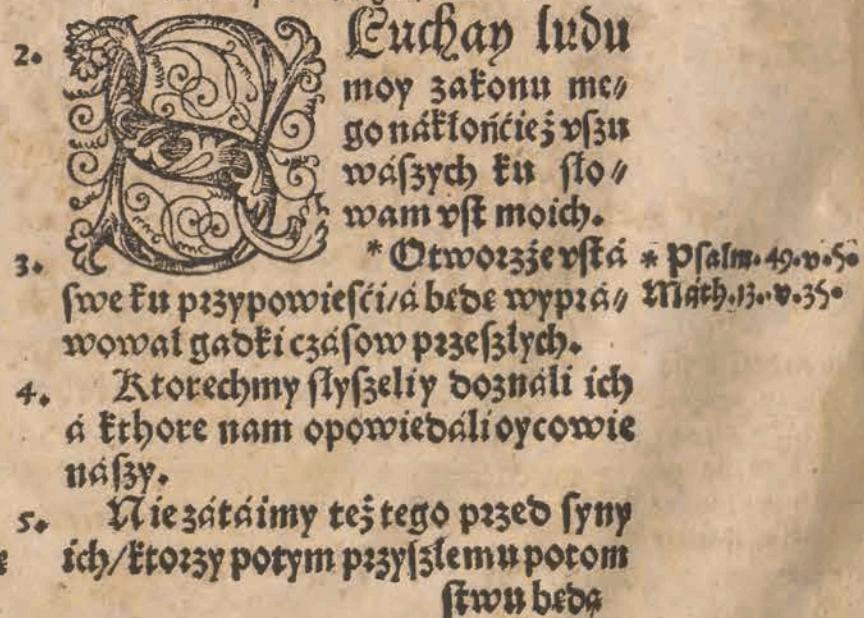 2. SLuchay ludu
moy zakonu me⸗
go nákłońćież vszu
wászych ku sło⸗
wam vst moich.
3. * Otworzżę vstá * Psalm. 49. v. 5.
swe ku przypowieśći/ á będę wyprá⸗ Math. 13. v. 35.
wował gadki czásow przeszłych.
4. Ktorechmy słyszeli y doználi ich
á kthore nam opowiedáli oycowie
nászy.
5. Nie zátáimy też tego przed syny
ich/ ktorzy potym przyszłemu potom
stwu będą